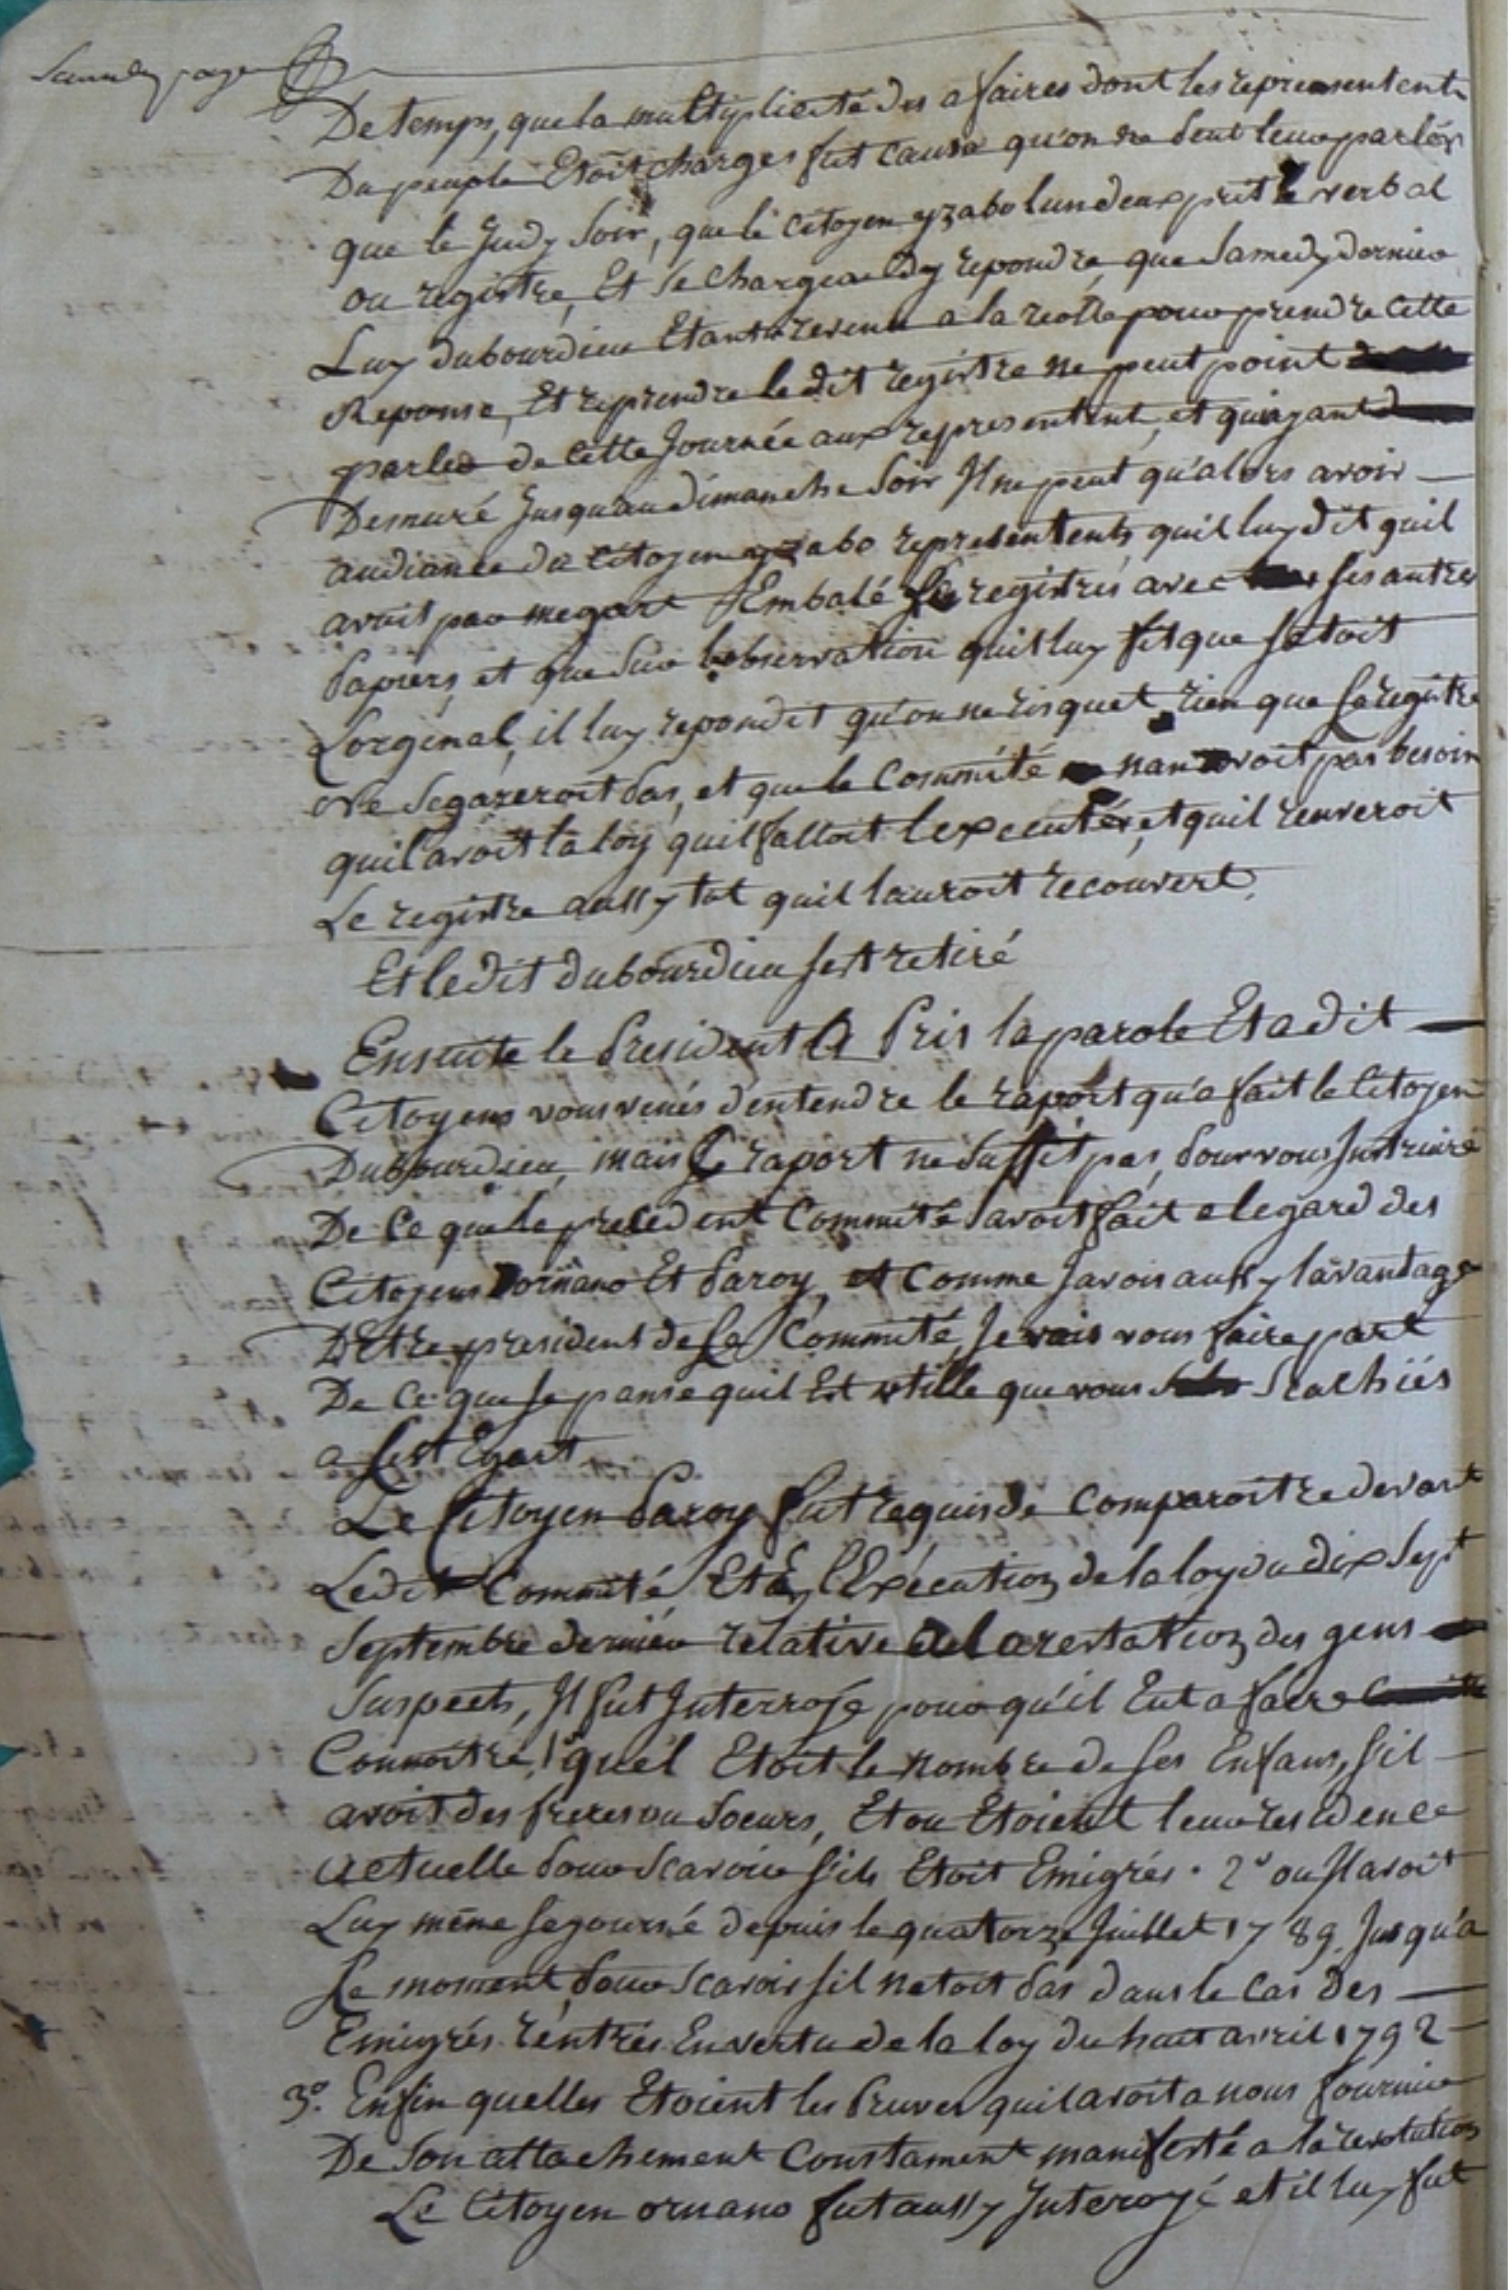 De temps, que la multiplicité des afaires dont les representents
Du peuple Etoit charges fut cause qu'on ne peut leur parlér
que le Judy soir, que le Citoyen yzabo lun deux prit le verbal
ou registre, Et se chargea dy repondre, que samedy dernier
Luy dubourdieu Etant revenu a la reolle pour prendre cette
Reponse, Et reprendre le dit registre ne peut point
parler de cette Journée aux representents, et qui ayant
Demuré Jusquau dimanche soir Il ne peut qu'alors avoir
audiance du Citoyen yzabo representents, quil luy dit quil
avoit par megart Embalé se registrés avec ses autres
papiers, et que sur lobservation quil luy fit que setoit
Lorginal, il luy repondit qu'on ne risquet rien que se registre
Ne segareroit pas, et que le Committé nan avoit pas besoin
quil avoit la loy quil falloit lexecuter, et quil renveroit
Le registre aussy tot quil lauroit recouvert,
Et le dit dubourdieu sest retiré
Ensuite le president A Pris la parole Et a dit
Citoyens vous venés d'entendre le raport qu'a fait le Citoyen
Dubourdieu, mais Ce raport ne suffit pas, pour vous Instruire
De Ce que le precedent Committé avoit fait a legard des
Citoyens Dornano Et paroy, et Comme Javois aussy lavantage
DEtre president de se Committé, Je vais vous faire part
De Ce que Je panse quil Est utille que vous Scachiés
a sest Egart
Le Citoyen paroy fut requis de Comparoitre devant
Ledit Committé Et En l'Exécution de la loy du dix sept
Septembre dernier relative a larestation des gens
Suspects, Il fut Interrogé pour qu'il Eut a faire
Connoitre, 1° quél Etoit le Nombre de ses Enfans, sil
avoit des freres ou soeurs, Et ou Etoient leur residence
actuelle pour scavoir sils Etoit Emigrés. 2° ou Il avoit
Luy même segourné depuis le quatorze Juillet 1789. Jusqu'a
se moment, pour scavoir sil netoit pas dans le Cas Des
Emigrés rentrés En vertu de la loy du huit avril 1792
3°. Enfin quelles Etoient les pruves quil avoit a nous fournir
De son attachement Constament manifesté a la revolution
Le Citoyen ornano fut aussy Interogé et il luy fut